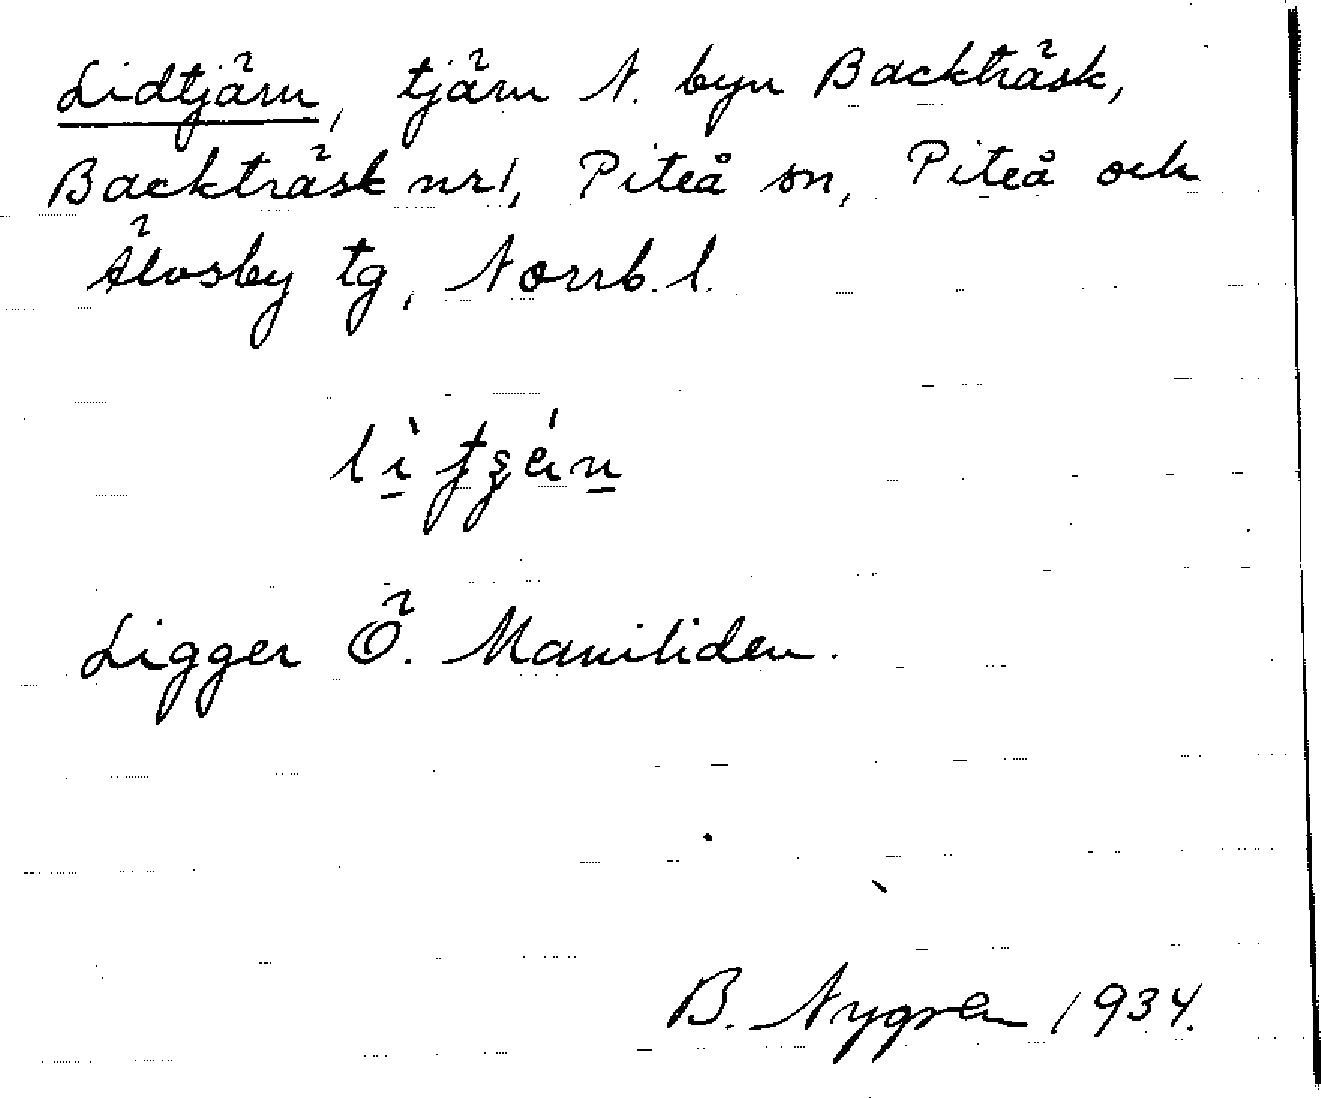 Lidtjärn, tjärn N. byn Backträsk,
Backträsk nr 1, Piteå sn, Piteå och
Älvsby tg, Norrb. l.
Ligger Ö. Maniliden.
B. Nygren 1934.